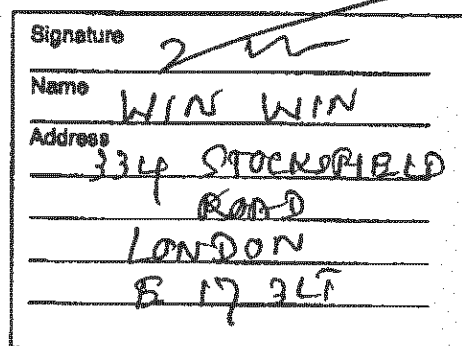 Signature
Name
WIN WIN
Address
334 STOCKSFIELD
ROAD
LONDON
E 17 3LT